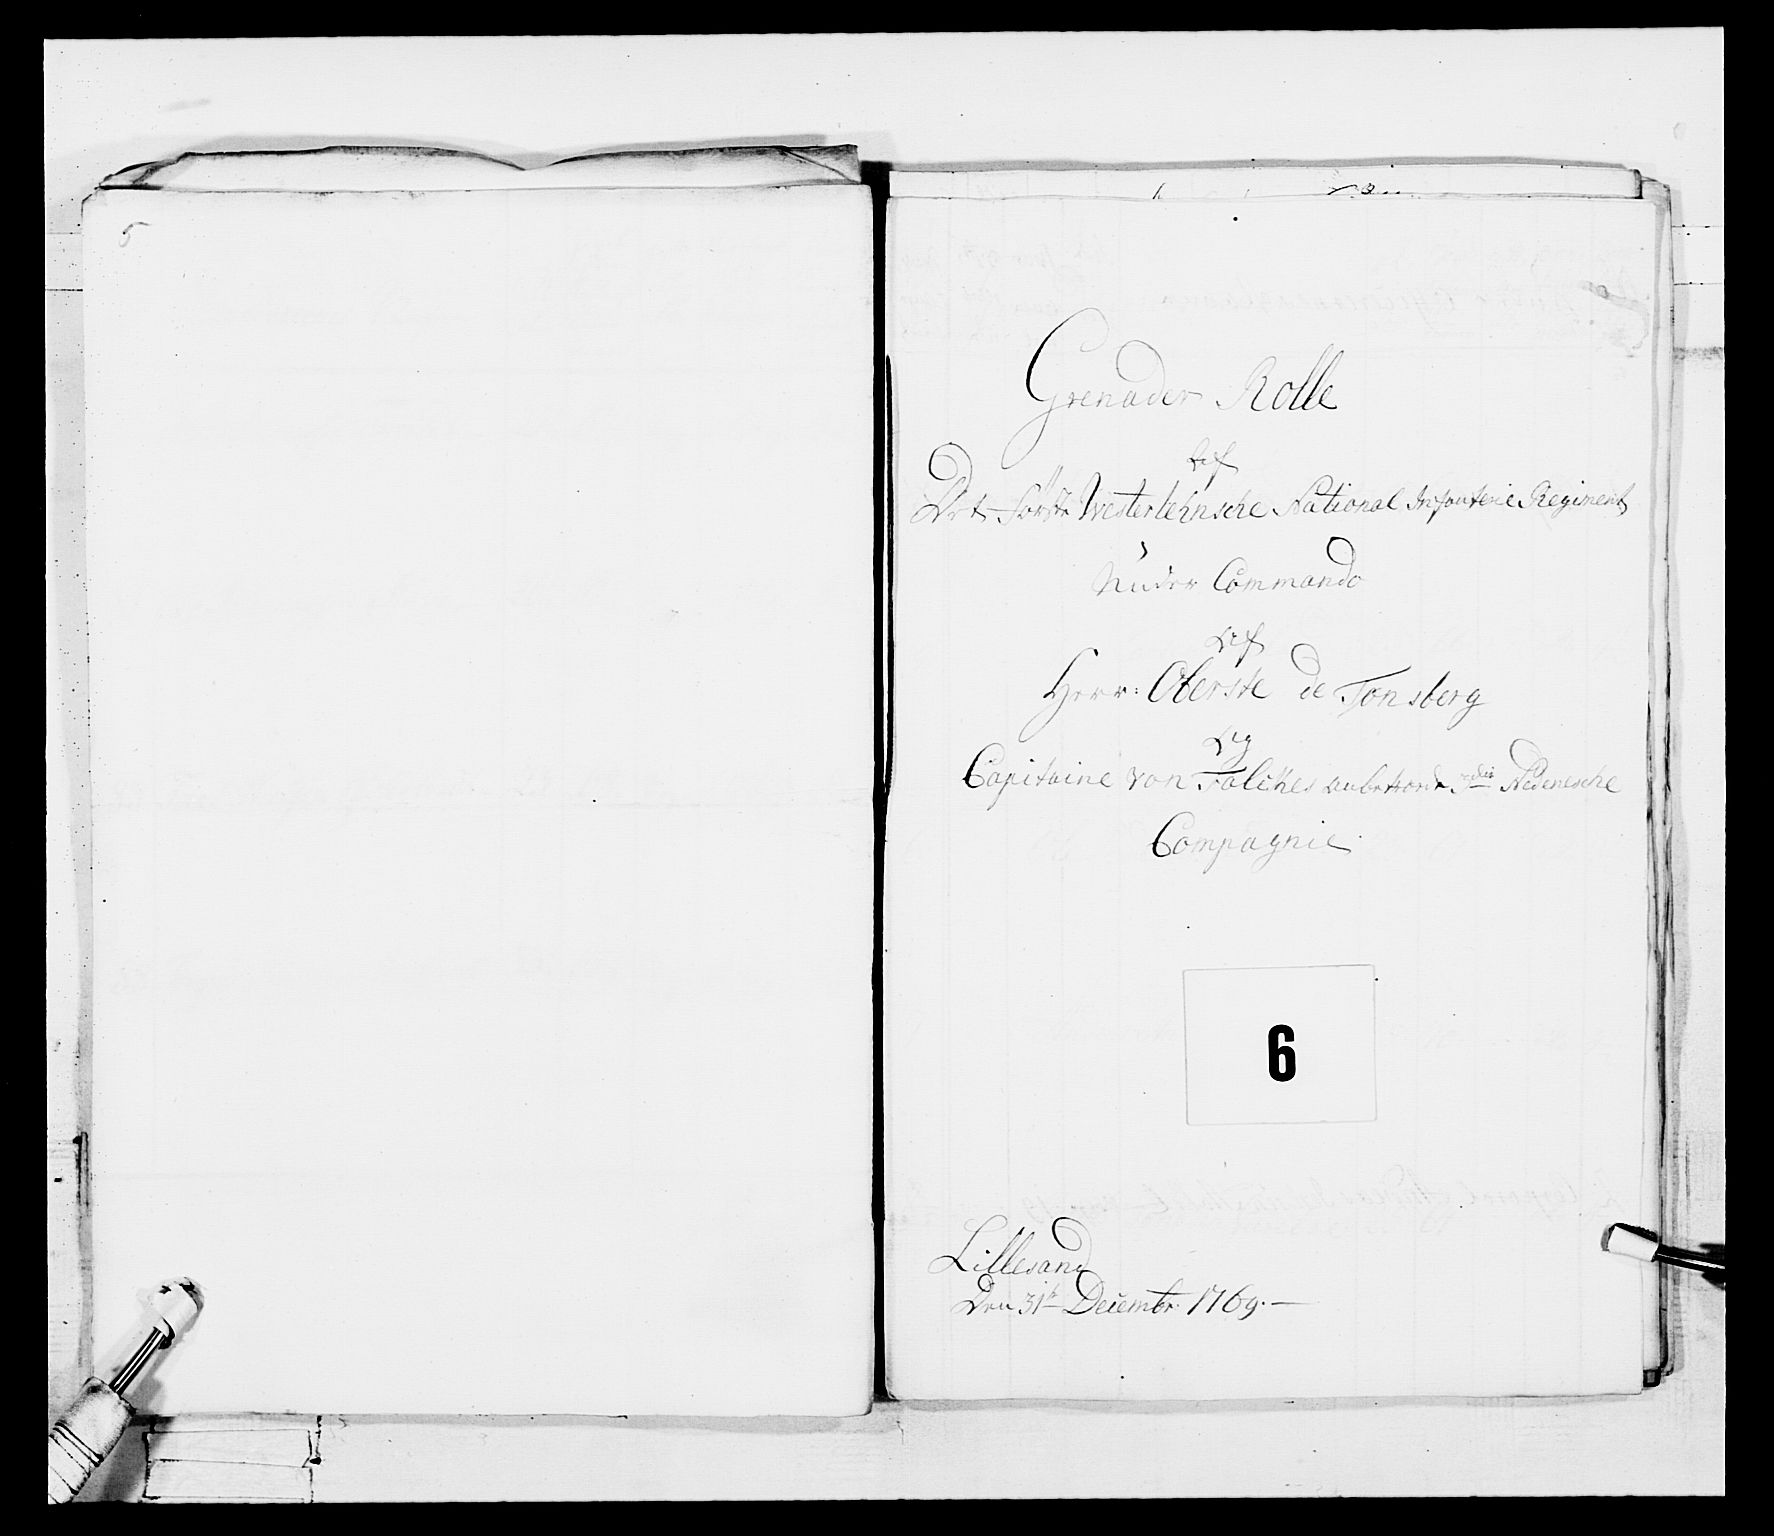 5
Grenader Rolle
Af
Det første Westerlehnsche National Infanterie Regiment
Under Commando
Af
Herr: Oberste de Tonsberg
Og
Capitaine von Falckes anbetroede 3die Nedenesche
Compagnie.
6
Lillesand
Den 31te Decembr. 1769.